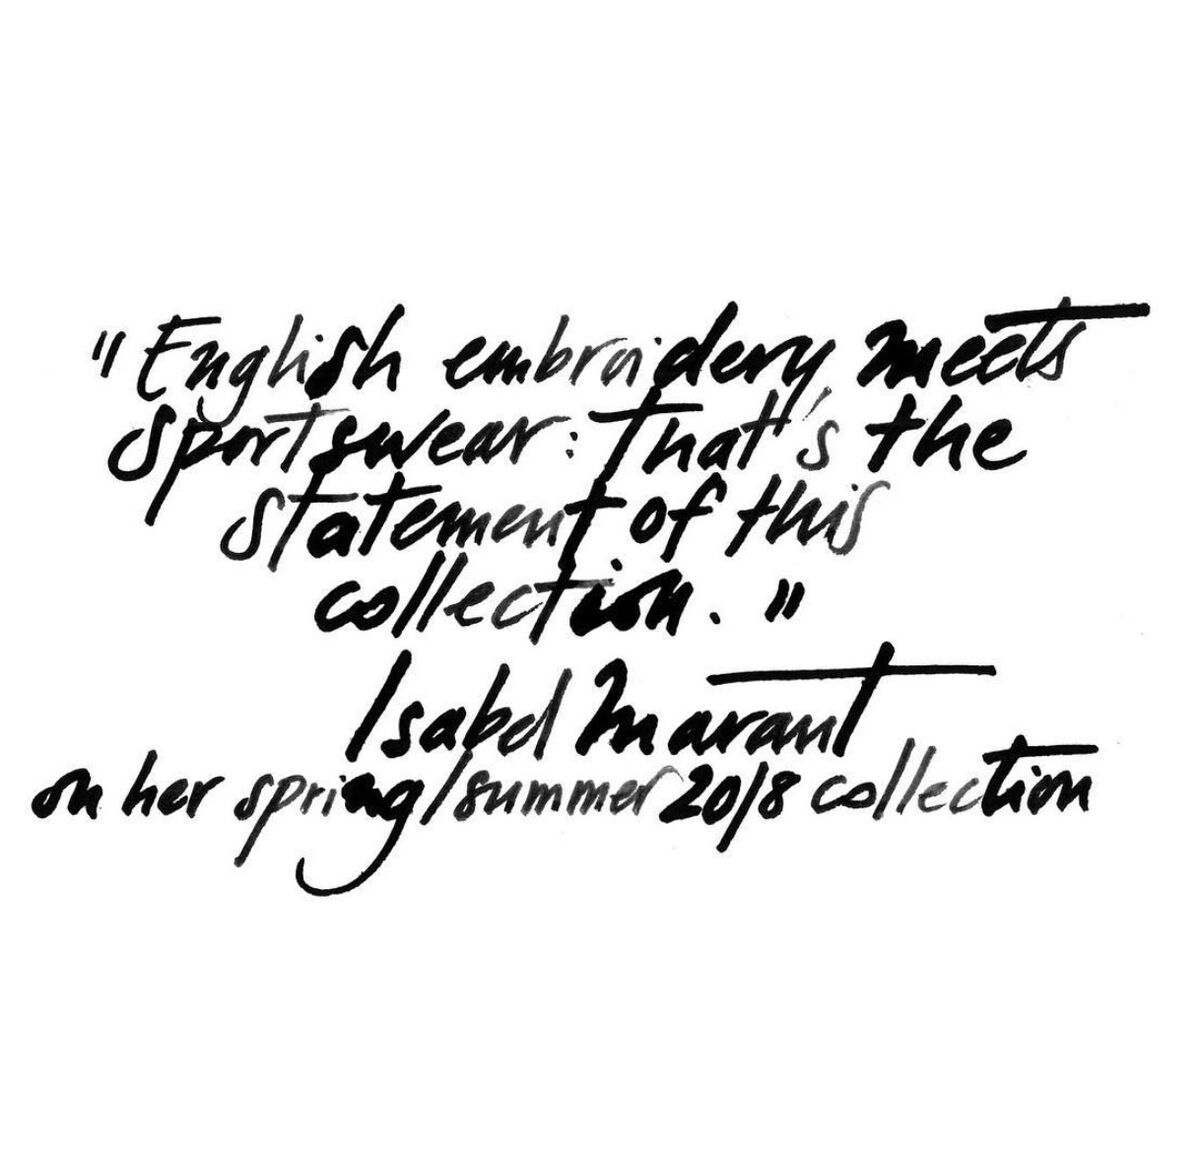 "English embroidery meets
sportswear: that's the
statement of this
collection."
Isabel Marant
on her spring/summer 2018 collection